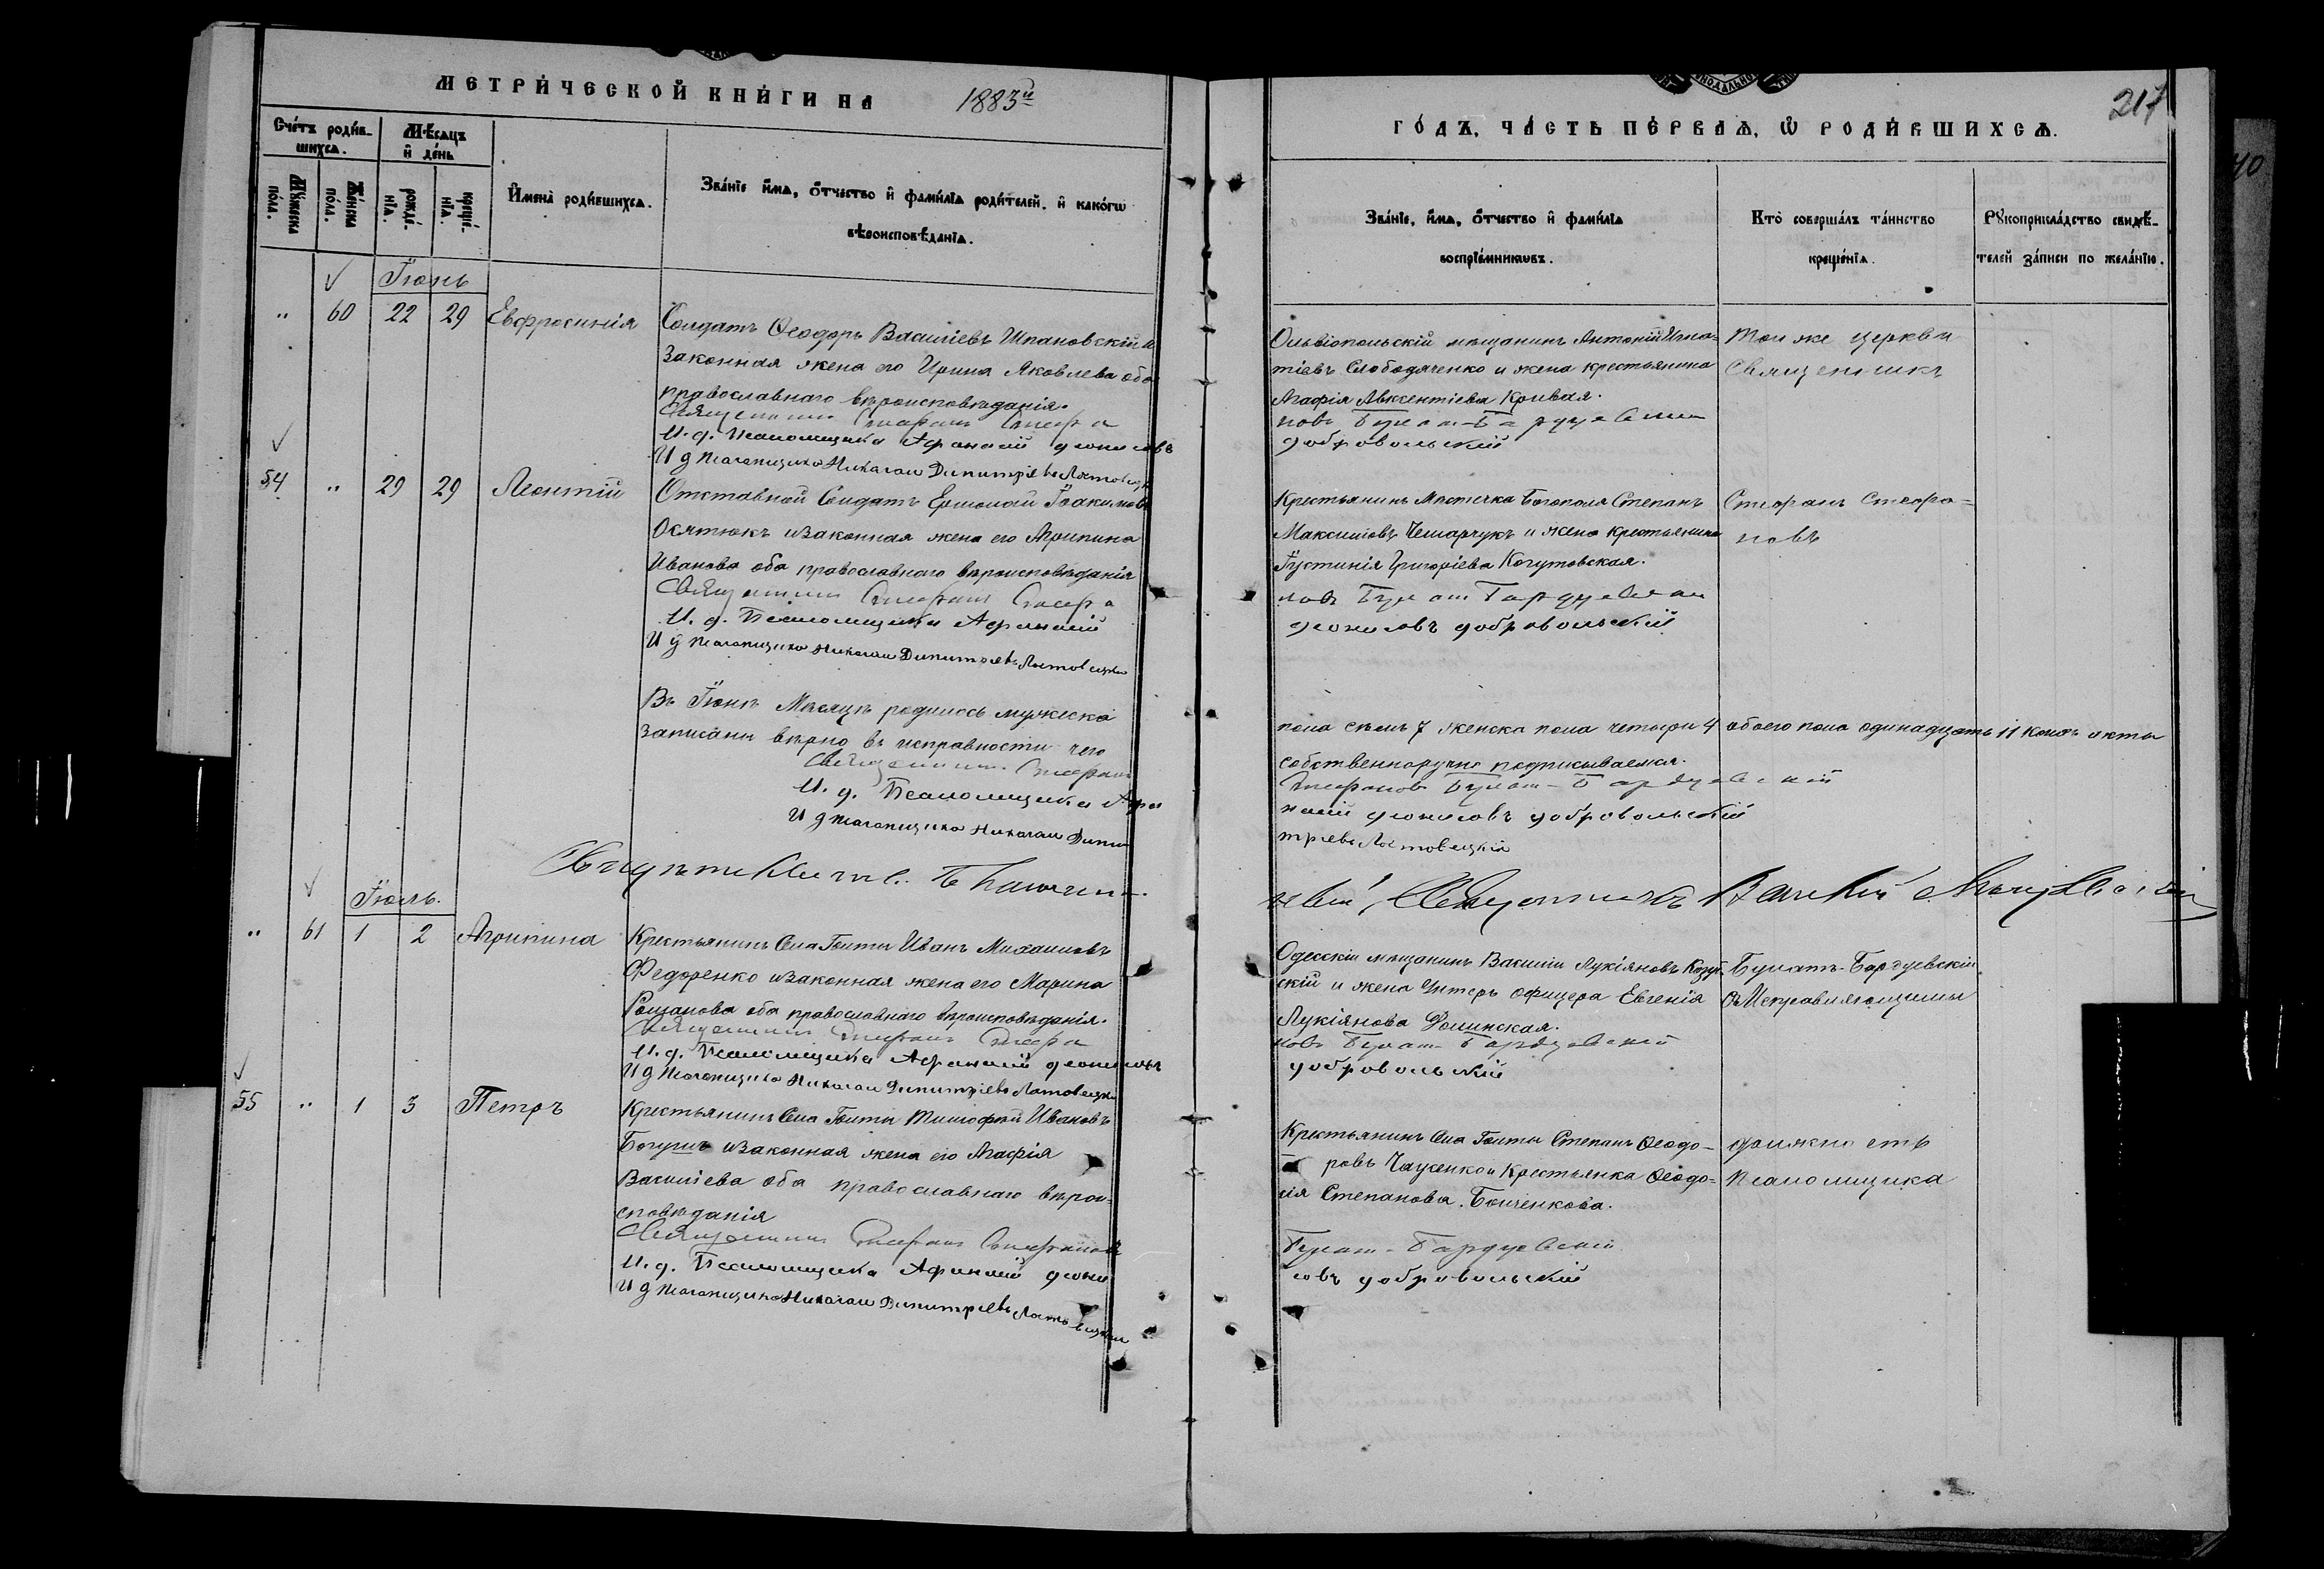 МЕТРИ́ЧЕСКОЙ КНИ́ГИ НА 1883й
Сче́тъ роди́в-
шихсѧ.
Мѣ́сѧцъ
и҆ де́нь
Мꙋ́жеска
по́ла.
Же́нска
по́ла.
рожде́-
нїѧ.
креще́-
нїѧ.
И҆мена̀ роди́вшихсѧ.
Зва́нїе и҆́мѧ, ѻ҆́тчество и҆ фами́лїѧ роди́телей, и҆ како́гѡ
вѣроисповѣ́данїѧ.
Іюнь
" 60 22 29 Евфросинія
Солдатъ Ѳеодоръ Василіевъ Шпановскій и
законная жена его Ирина Яковлева оба
православнаго вѣроисповѣданія.
Священникъ Стефанъ Стефа
И. д. Псаломщика Афанасій дионисовъ
И д Псаломщика Николай Димитріевъ Лотовецкій
54 " 29 29 Леонтій
Отставной Солдатъ Ермолай Іоакимовъ
Осятюкъ изаконная жена его Агрипина
Иванова оба православнаго вѣроисповѣданія
Священникъ Стефанъ Стефа
И. д. Псаломщика Афанасій
И д Псаломщика Николай Димитріевъ Лотовецкій
Въ Іюнѣ Мѣсяцѣ родилось мужеска
записаны вѣрно въ исправности чего
Священникъ Стефанъ
И. д. Псаломщика Афа
И д Псаломщика Николай Дими
Іюль.
" 61 1 2 Агрипина
Крестьянинъ Села Голты Иванъ Михаиловъ
Федоренко изаконная жена его Марина
Романова оба православнаго вѣроисповѣданія.
Священникъ Стефанъ Стефа
И. д. Псаломщика Афанасій дионисовъ
И д Псаломщика Николай Димитріевъ Лотовецкій
55 " 1 3 Петръ
Крестьянинъ Села Голты Тимофей Ивановъ
изаконная жена его Агафія
Василіева оба православнаго вѣрои-
сповѣданія
Священникъ Стефанъ Стефановъ
И. д. Псаломщика Афанасій диони
И д Псаломщика Николай Димитріевъ Лотовецкій
217
ГО́ДЪ, ЧА́СТЬ ПЕ́РВАѦ, Ѡ҆ РОДИ́ВШИХСѦ.
Зва́нїе, и҆́мѧ, ѻ҆́тчество и҆ фами́лїѧ
воспрїе́мникѡвъ.
Кто̀ соверша́лъ та́инство
креще́нїѧ.
Рꙋкоприкла́дство свидѣ́-
телей за́писи по жела́нїю.
Ольвіопольскій мѣщанинъ Антоній Игна-
тіевъ Слободяченко и жена крестьянина
Агафія Авксентіева Кривая.
новъ Булат-Бардуевскій
добровольскій
Той же церкви
Священникъ
Крестьянинъ Мѣстечка Богополя Степанъ
Максимовъ и жена крестьянина
Іустинія Григоріева Когутовская.
новъ Булат Бардуевскій
діонисовъ добровольскій
Стефанъ Стефа-
новъ
пола семь 7 женска пола четыри 4 обоего пола одинадцать 11 коихъ акты
собственноручно подписываемся.
Стефановъ Булат-Бардуевскій
насій дионисовъ добровольскій
тріевъ Лотовецкій
Священникъ
Одесскій мѣщанинъ Василій Лукіановъ
скій и жена Унтеръ офицера Евгенія
Лукіянова
новъ Булат Бардуевскій
добровольскій
Булатъ-Бардуевскій
съ Исправляющимъ
Крестьянинъ Села Голты Степанъ Ѳеодо-
ровъ и Крестьянка Ѳеодо-
сія Степанова
Булат-Бардуевскій
совъ добровольскій
должность
псаломщика